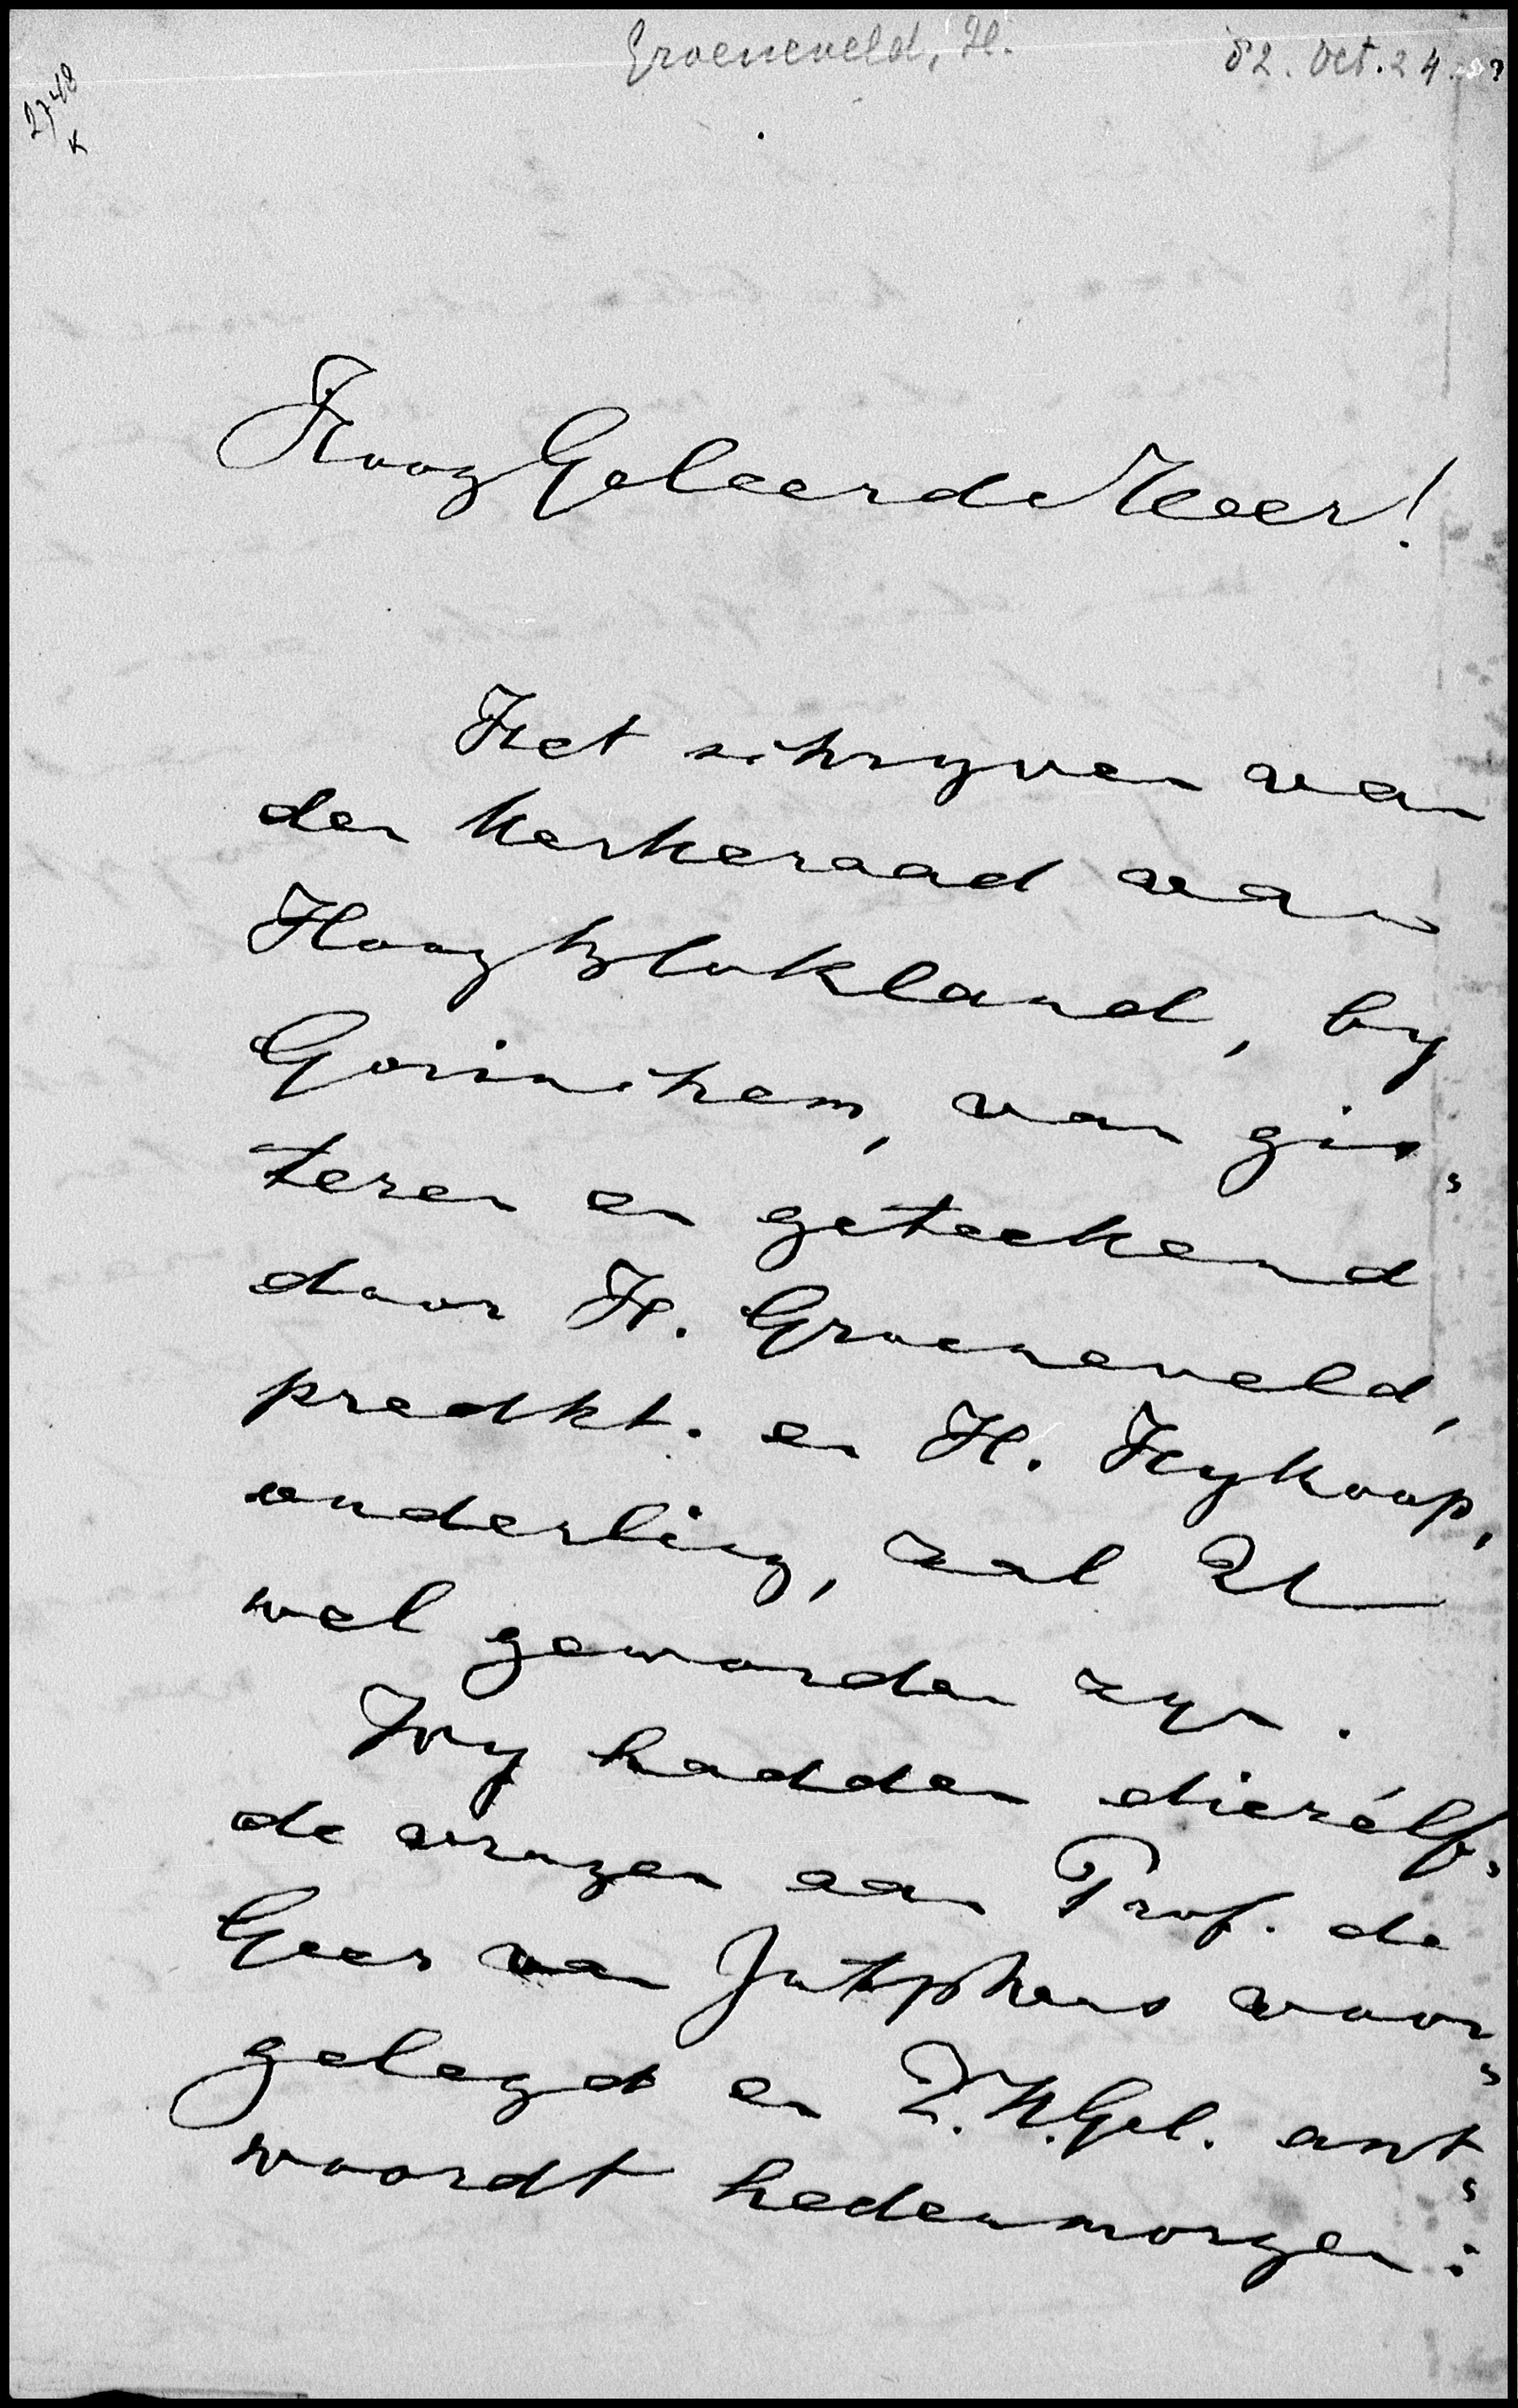 Groeneveld, H.
82. Oct. 24.
2748
K
HoogGeleerde Heer!
Het schryven van
den kerkeraad van
HoogBlokland, by
Gorinchem, van gis„
teren en geteekend
door H. Groeneveld,
predkt. en H. Heykoop,
ouderling, zal U
wel geworden zyn.
Wy hadden diezélf„
de vragen aan Prof. de
Geer van Jutphaas voor„
gelegd en Z.H.Gel. ant„
woordt hedenmorgen: